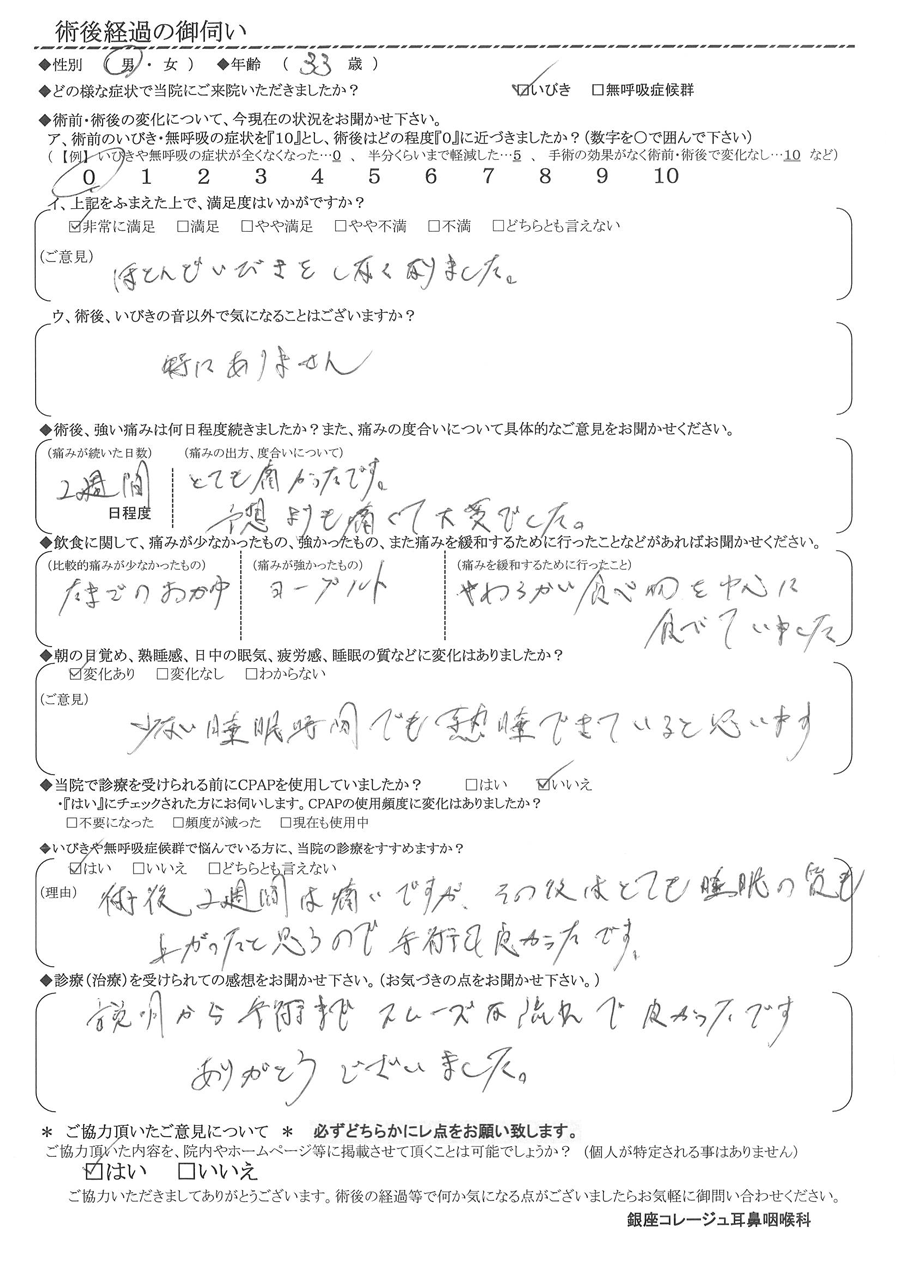 術後経過の御伺い
◆性別 （ 男 ・ 女 ） ◆年齢 （ 33 歳 ）
◆どの様な症状で当院にご来院いただきましたか？ ☑いびき □無呼吸症候群
◆術前・術後の変化について、今現在の状況をお聞かせ下さい。
ア、術前のいびき・無呼吸の症状を『10』とし、術後はどの程度『0』に近づきましたか？（数字を〇で囲んで下さい）
（ 【例】 いびきや無呼吸の症状が全くなくなった…0 、 半分くらいまで軽減した…5 、 手術の効果がなく術前・術後で変化なし…10 など）
0 1 2 3 4 5 6 7 8 9 10
イ、上記をふまえた上で、満足度はいかがですか？
☑非常に満足 □満足 □やや満足 □やや不満 □不満 □どちらとも言えない
(ご意見)
ほとんどいびきをしなくなりました。
ウ、術後、いびきの音以外で気になることはございますか？
特にありません
◆術後、強い痛みは何日程度続きましたか？また、痛みの度合いについて具体的なご意見をお聞かせください。
(痛みが続いた日数) (痛みの出方、度合いについて)
2週間 とても痛かったです。
日程度 予想よりも痛くて大変でした。
◆飲食に関して、痛みが少なかったもの、強かったもの、また痛みを緩和するために行ったことなどがあればお聞かせください。
(比較的痛みが少なかったもの) (痛みが強かったもの) (痛みを緩和するために行ったこと)
たまごのおかゆ ヨーグルト やわらかい食べ物を中心に
食べていました
◆朝の目覚め、熟睡感、日中の眠気、疲労感、睡眠の質などに変化はありましたか？
☑変化あり □変化なし □わからない
(ご意見)
少ない睡眠時間でも熟睡できていると思います
◆当院で診療を受けられる前にCPAPを使用していましたか？ □はい ☑いいえ
・『はい』にチェックされた方にお伺いします。CPAPの使用頻度に変化はありましたか？
□不要になった □頻度が減った □現在も使用中
◆いびきや無呼吸症候群で悩んでいる方に、当院の診療をすすめますか？
☑はい □いいえ □どちらとも言えない
(理由) 術後2週間は痛いですが、その後はとても睡眠の質も
上がったと思うので手術は良かったです。
◆診療（治療）を受けられての感想をお聞かせ下さい。（お気づきの点をお聞かせ下さい。）
説明から手術までスムーズな流れで良かったです
ありがとうございました。
＊ ご協力頂いたご意見について ＊ 必ずどちらかにレ点をお願い致します。
ご協力頂いた内容を、院内やホームページ等に掲載させて頂くことは可能でしょうか？ （個人が特定される事はありません）
☑はい □いいえ
ご協力いただきましてありがとうございます。術後の経過等で何か気になる点がございましたらお気軽に御問い合わせください。
銀座コレージュ耳鼻咽喉科